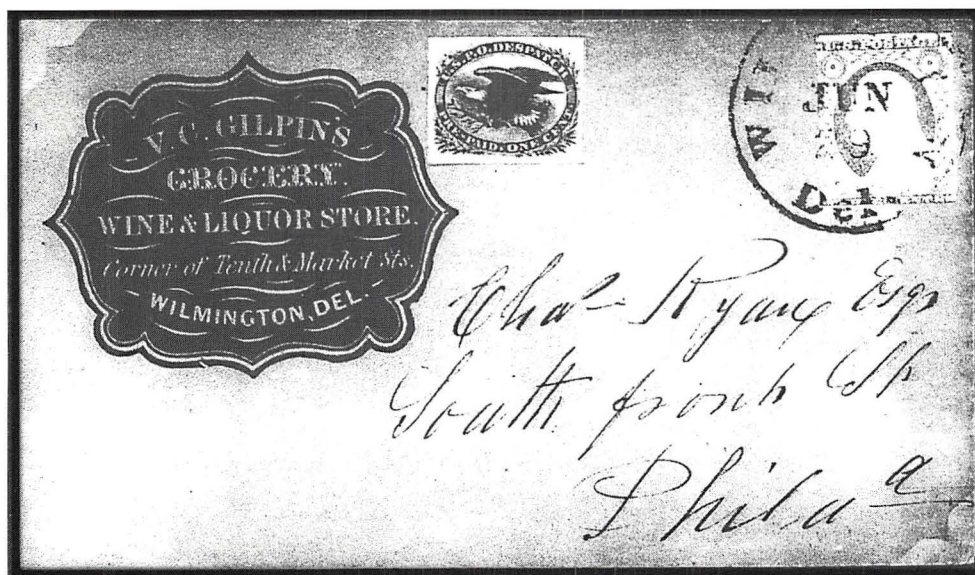 V. C. GILPIN'S
GROCERY.
WINE & LIQUOR STORE.
Corner of Tenth & Market Sts.
WILMINGTON, DEL.
U.S.P.O. DESPATCH
PRE-PAID. ONE CENT
U.S. POSTAGE
WI
JUN
Del
Chas Ryan Esqr
South front St
Philada